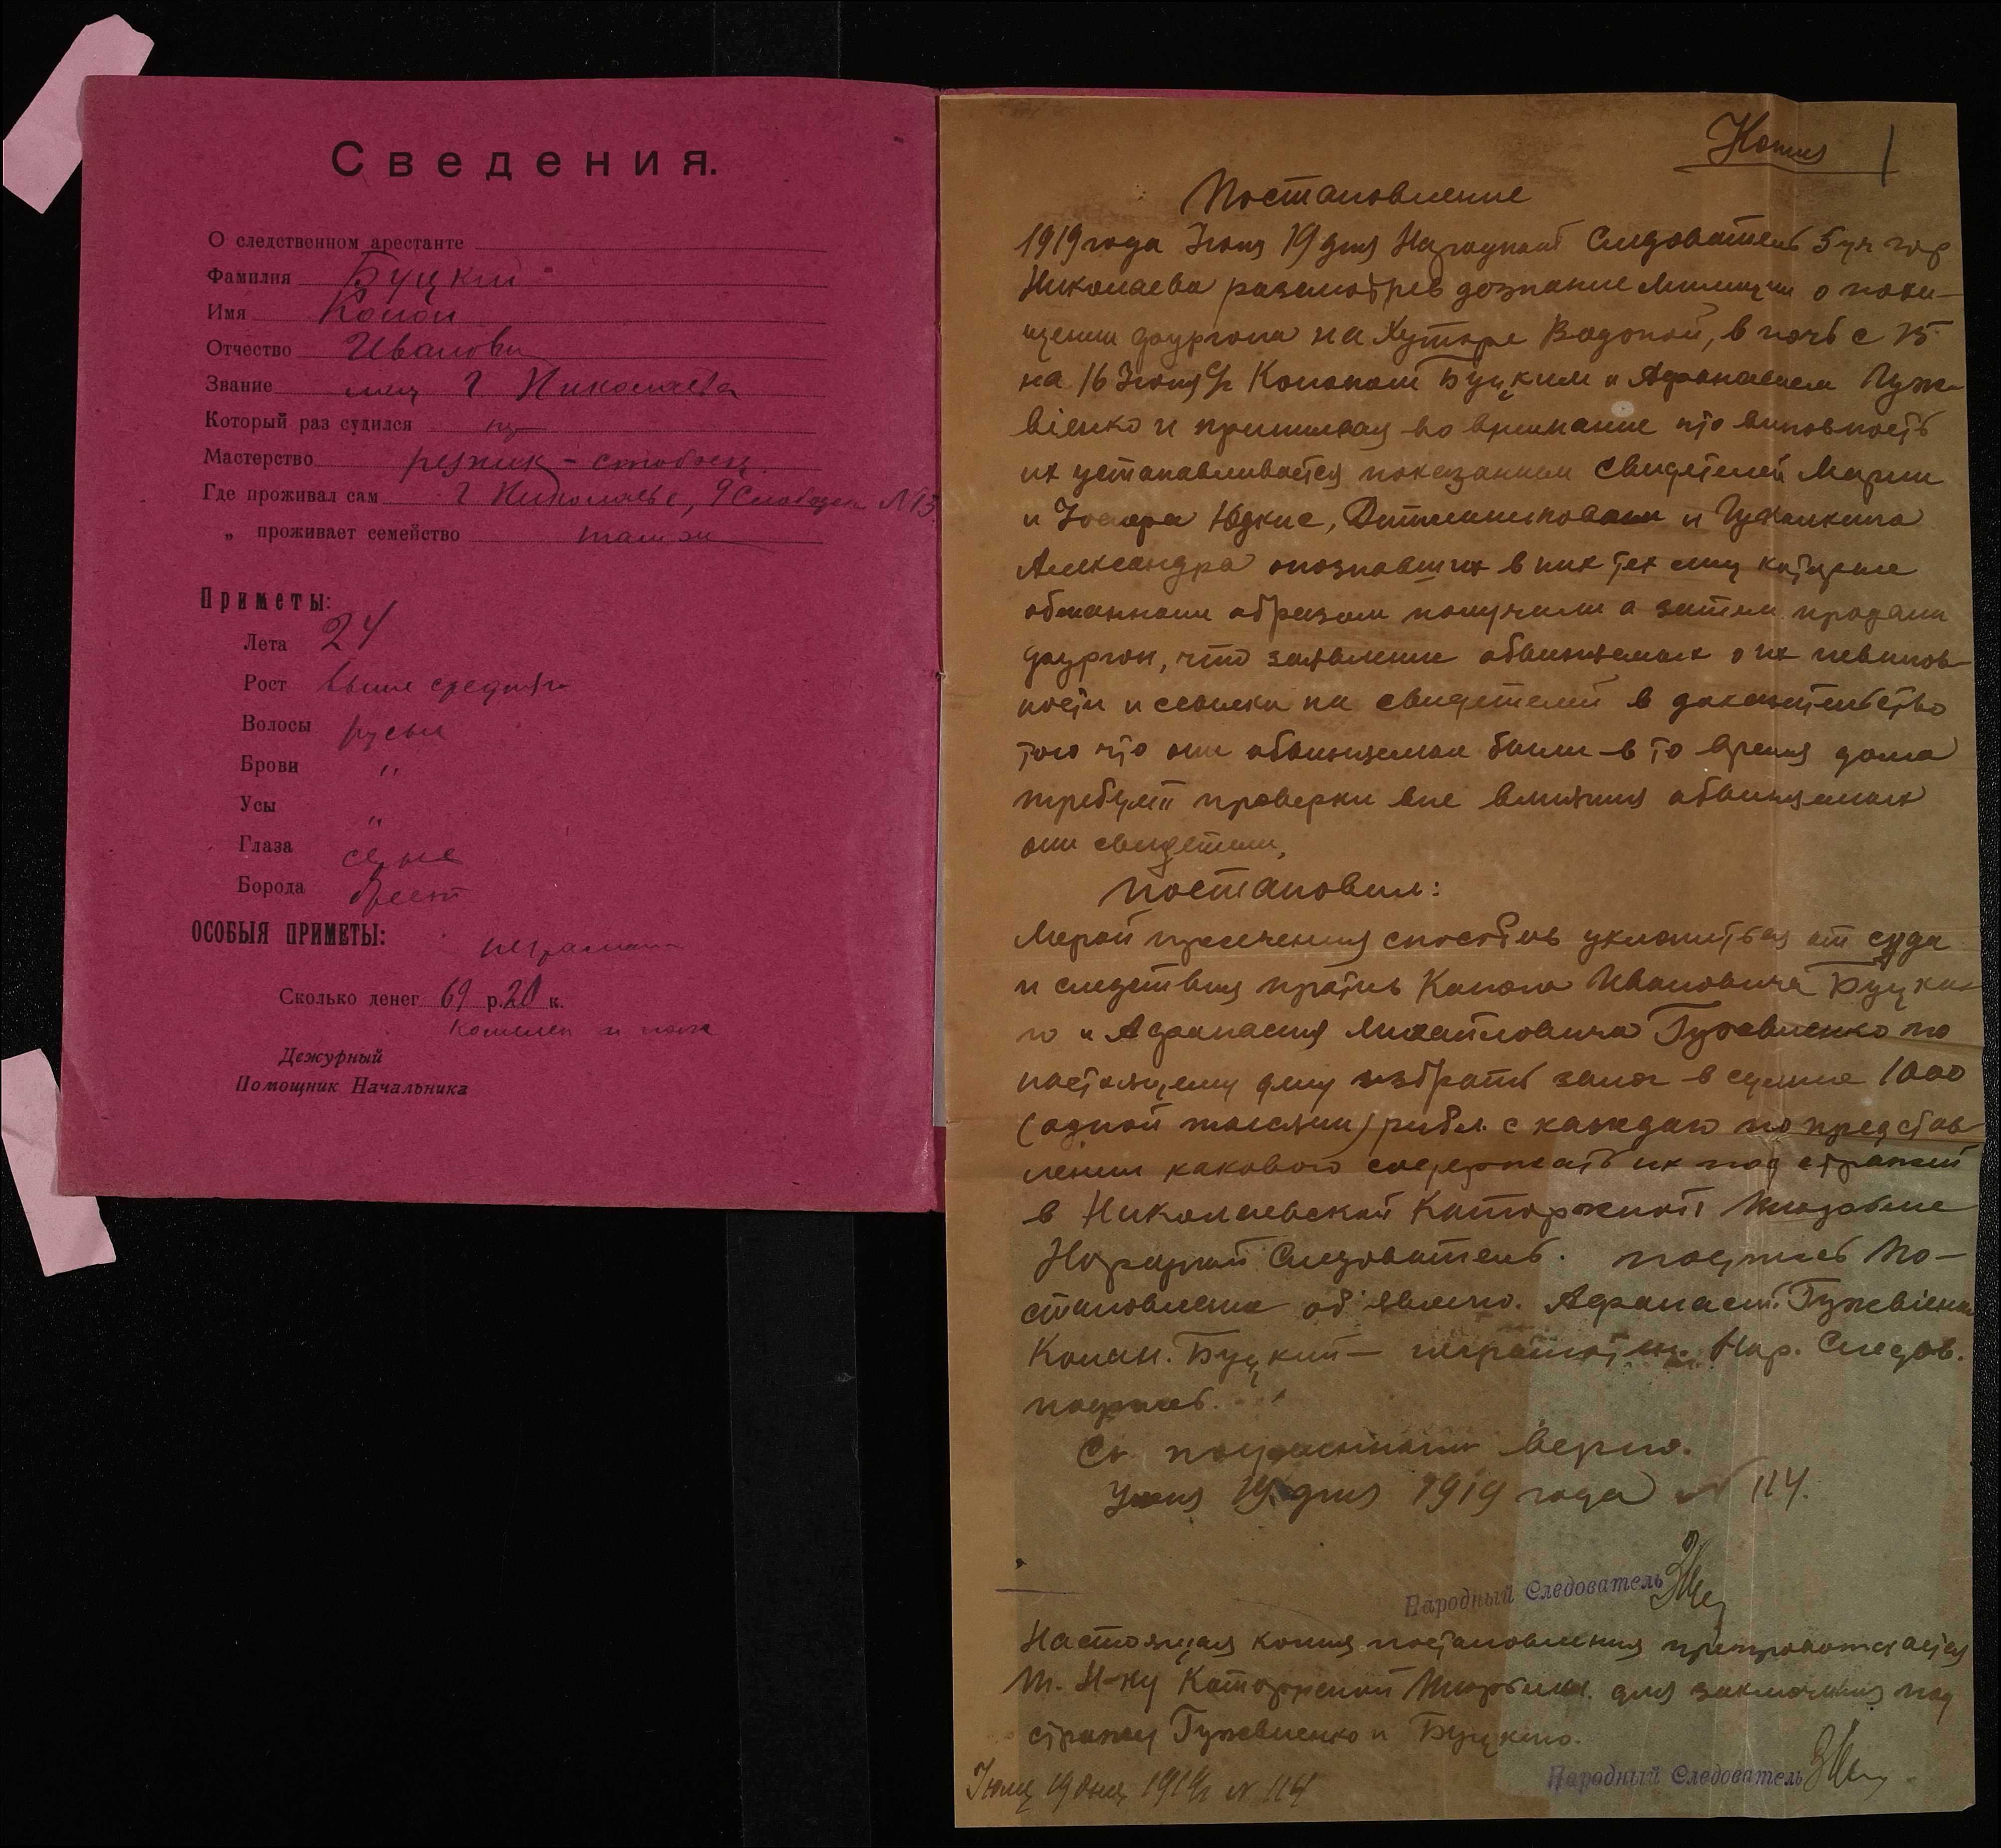 Сведения.
О следственном арестанте
Фамилия Буцкий
Имя Конон
Отчество Иванович
Звание мещ г Николаева
Который раз судился
Мастерство резник - стобоец
Где проживал сам г. Николаеве, 9 Слободск №13
„ проживает семейство там же
Приметы:
Лета 24
Рост выше среднего
Волосы русые
Брови "
Усы "
Глаза серые
Борода бреет
ОСОБЫЯ ПРИМЕТЫ:
неграмотн
Сколько денег 69 р. 20 к.
кошелек и
Дежурный
Помощник Начальника
Копия 1
Постановление
1919 года Июня 19 дня Народный Следователь 5 уч гор
Николаева рассмотрев дознание милиции о похи-
щении на Хуторе Водопой, в ночь с 15
на 16 Июня с/г Кононом Буцким и Афанасием Гуж-
віенко и принимая во внимание что виновность
их устанавливается показанием свидетелей Марии
и Юдкис, и
Александра опознавших в них тех лиц которые
обманным образом получили а затем продали
что заявление обвиняемых о их невинов-
ности и ссылки на свидетелей в доказательство
того что они обвиняемые были в то время дома
требует проверки вне влияния обвиняемых
они свидетели,
постановил:
Мерой пресечения способов уклониться от суда
и следствия против Конона Ивановича Буцка-
го и Афанасия Михайловича Гужвиенко по
настоящему делу избрать залог в сумме 1000
(одной тысячи) рубл. с каждаго по представ-
лении какового содержать их под стражей
в Николаевской Каторжной тюрьме
Народный Следователь. подпись По-
становление об'явлено. Афанасий Гужвіенко
Конан. Буцкий — неграмотн. Нар. Следов.
подпись.
С подлинным верно.
Июня 19 дня 1919 года № 114.
Народный Следователь
Настоящая копия постановления препровождается
т. Н-ку Каторжной Тюрьмы для заключения под
стражу Гужвиенко и Буцкого.
Народный Следователь
Июня 19 дня 1919 г № 114